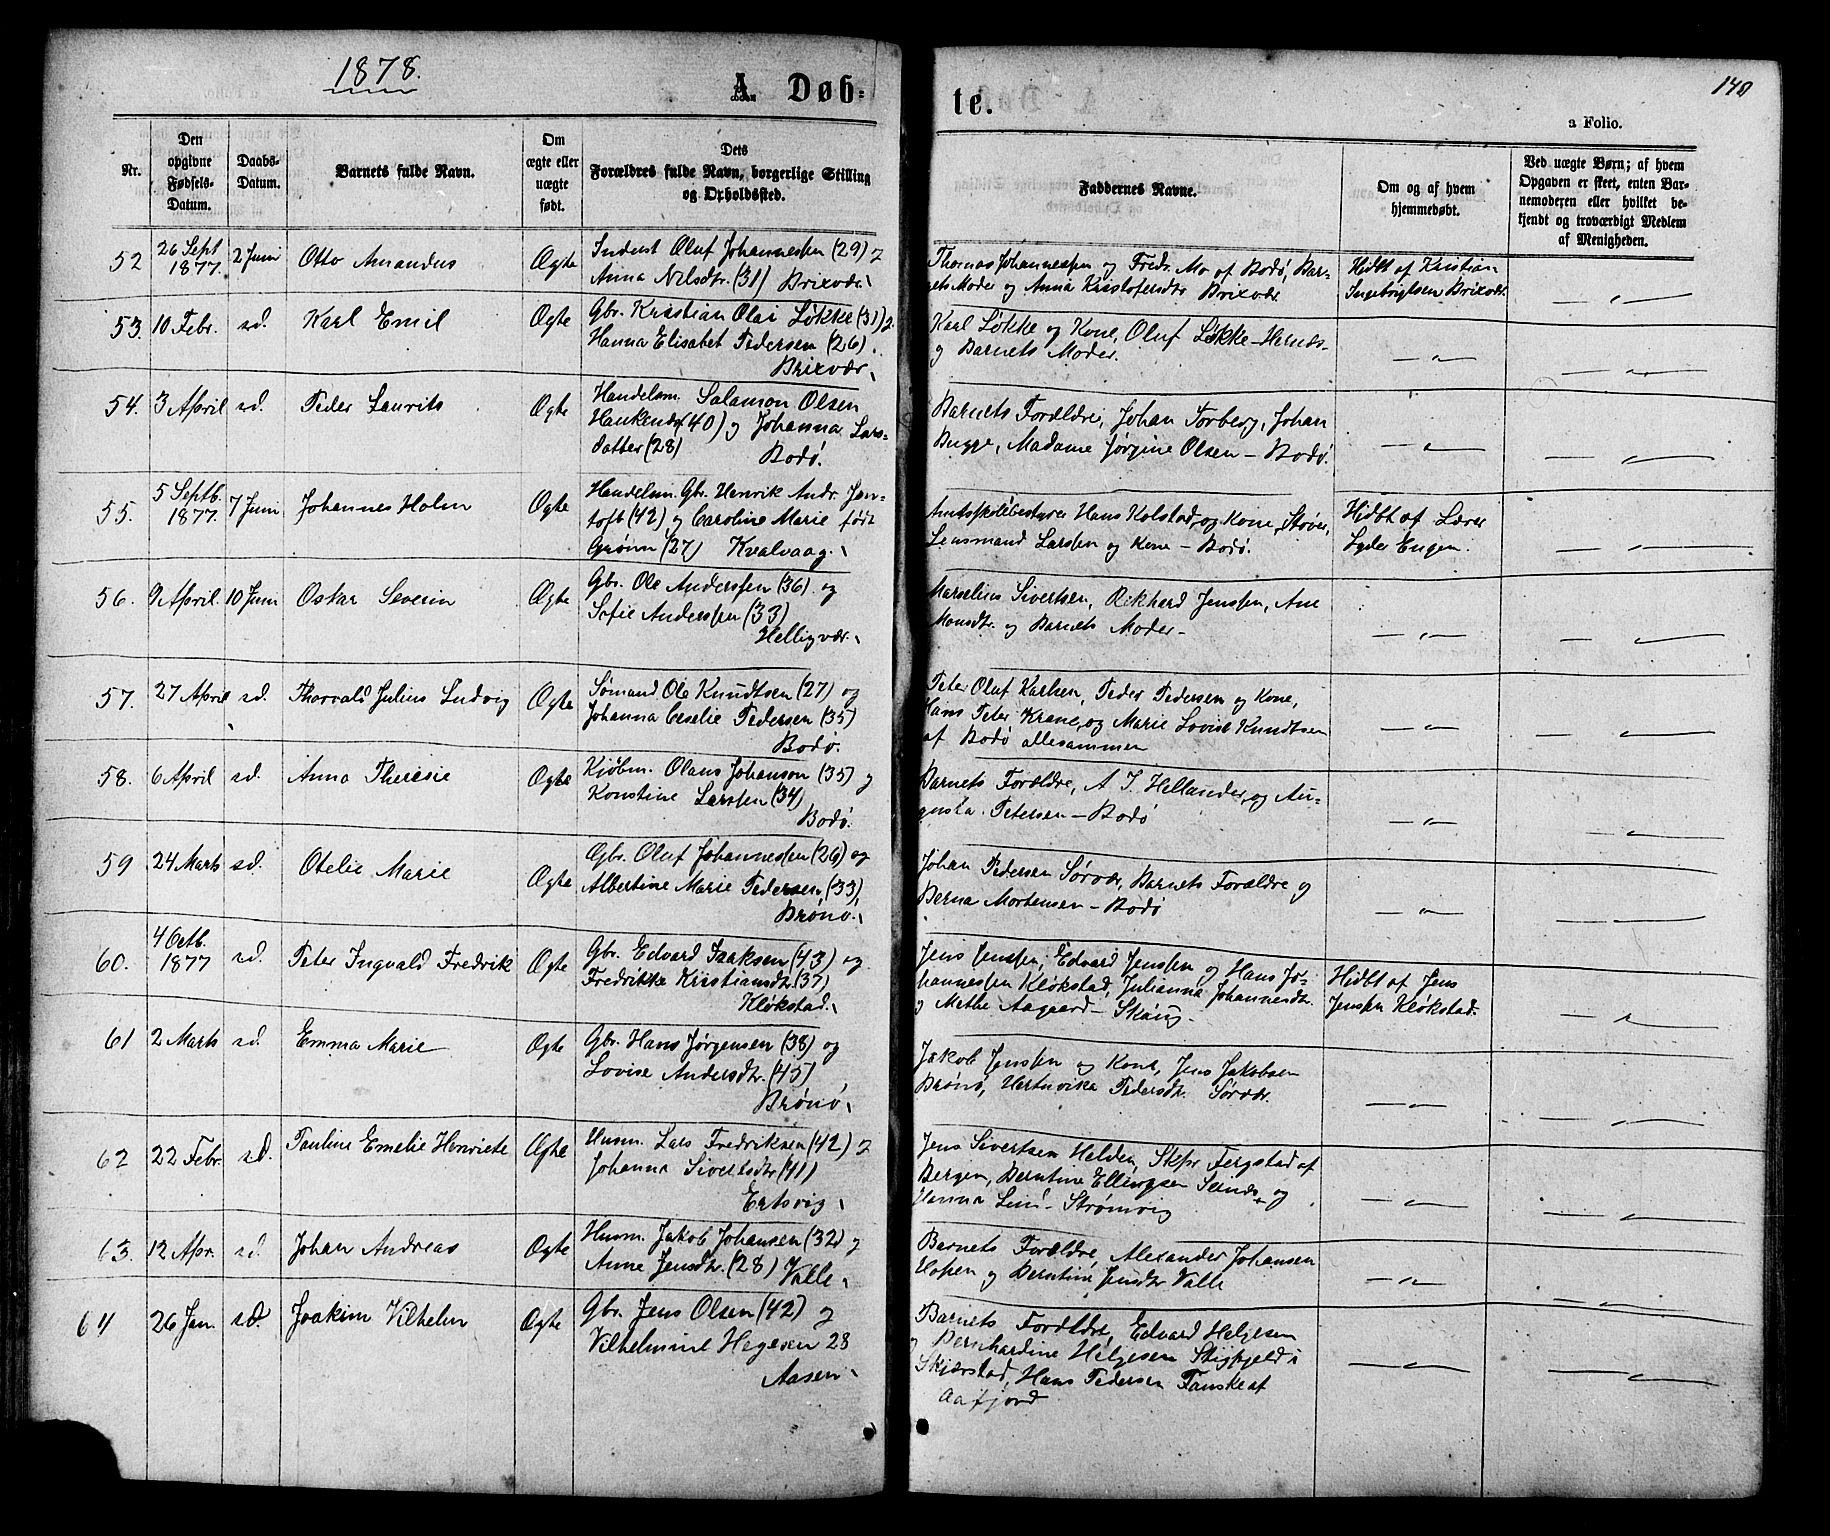 1878.
A. Døb=
te.
140
a Folio.
Nr.
Den
opgivne
Fødsels-
Datum.
Daabs-
Datum.
Barnets fulde Navn.
Om
ægte eller
uægte
født.
Dets
Forældres fulde Navn, borgerlige Stilling
og Opholdssted.
Faddernes Navne.
Om og af hvem
hjemmedøbt.
Ved uægte Børn; af hvem
Opgaven er skeet, enten Bar-
nemoderen eller hvilket be-
kjendt og troværdigt Medlem
af Menigheden.
52
26 Sept
1877.
2 Juni
Otto Amandus
Ægte
Inderst Oluf Johannessen (29) &
Anna Nilsdtr. (31) Brixvær
Thomas Johannessen og Fredr. Mo af Bodø, Bar-
nets Moder og Anna Kristofersdtr Brixvær
Hjdbt af Kristian
Ingebrigtsen Brixvær.
53.
10 Febr.
sd.
Karl Emil
Ægte
Gbr. Kristian Olai Løkke (31) &
Hanna Elisabet Pedersen (26).
Brixvær
Karl Løkke og Kone, Oluf Løkke
og Barnets Moder.
54.
3 April
sd.
Peder Laurits
Ægte
Handelsm. Salamon Olsen
(40) og Johanna Lars-
datter (28)
Bodø.
Barnets Forældre, Johan Torberg, Johan
Bugge, Madame Jørgine Olsen - Bodø.
55.
5 Septb.
1877.
7 Juni
Johannes Holm
Ægte
Handelsm. Gbr. Henrik Andr. Jen-
toft (42) og Caroline Marie født
Grønn (27) Kvalvaag.
Amtsskolebestyrer Hans Kolstad og Kone, Støver,
Lensmand Larssen og Kone - Bodø.
Hjdbt af Lærer
Lyder Engen.
56.
9 April.
10 Juni
Oskar Severin
Ægte
Gbr. Ole Anderssen (36) og
Sofie Anderssen (33)
Helligvær.
Marselius Sivertsen, Rikhard Jenssen, Ane
Monsdtr. og Barnets Moder -
57.
27 April
sd.
Thorvald Julius Ludvig
Ægte
Sømand Ole Knudtsen (27) og
Johanna Ceselie Pedersen (35)
Bodø.
Peter Oluf Karlsen, Peder Pedersen og Kone,
Hans Peter Krane, og Marie Lovise Knudtsen
af Bodø allesammen
58.
6 April
sd.
Anna Theresie
Ægte
Kjøbm. Olaus Johanson (35) og
Konstine Larssen (34)
Bodø.
Barnets Forældre, A J. Hellander, og Au-
gusta Petersen - Bodø
59
24 Marts
sd.
Otelie Marie
Ægte
Gbr. Oluf Johannessen (26) og
Albertine Marie Pedersen (33)
Brønø.
Johan Pedersen Sørvær, Barnets Forældre og
Berna Mortensen - Bodø
60.
4 Octb.
1877
sd.
Peter Ingvald Fredrik
Ægte
Gbr. Edvard Isaksen (43) og
Fredrikke Kristiansdtr. (37)
Kløkstad.
Jens Jenssen, Edvard Jenssen og Hans Jo-
hannessen Kløkstad, Julianna Johannesdtr.
og Methe Aagaard - Skaug -
Hjdbt af Jens
Jenssen Kløkstad.
61
2 Marts
sd.
Emma Marie
Ægte
Gbr. Hans Jørgensen (38) og
Lovise Andersdtr. (45)
Brønø
Jakob Jenssen og Kone, Jens Jakobsen
Brønø, Hertvika Pedersdtr. Sørvær.
62
22 Febr.
sd.
Pauline Emelie Henriete
Ægte
Husm. Lars Fredriksen (42) &
Johanna Sivertsdtr (41)
Ertsvig
Jens Sivertsen Helden, Skpr Fergstad af
Bergen, Berntine Ellingsen Seines og
Hanna Lund - Strømvig
63.
12 Apr.
sd.
Johan Andreas
Ægte
Husm. Jakob Johansen (32) og
Anne Jensdtr. (28) Valle
Barnets Forældre, Alexander Johansen
Hopen og Berntine Jensdtr Valle
64
26 Jan.
sd.
Joakim Vilhelm
Ægte
Gbr. Jens Olsen (42) og
Vilhelmine Hegesen 28
Aasen
Barnets Forældre, Edvard Helgesen
og Bernhardine Helgesen Stigfjeld i
Skjerstad, Hans Pedersen Fanske af
Aafjord